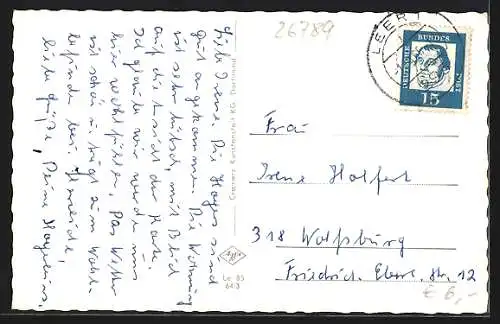 26789
LEER
DEUTSCHE BUNDESPOST
15
Liebe Irene. Die Hayes sind
gut angekommen. Die Wohnung
ist sehr hübsch, mit Blick
auf die Ansicht der Karte.
Ich glaube wir werden uns
hier wohl fühlen. Das Wetter
ist schön u. trägt zum Wohl-
befinden bei.
liebe Grüße, Deine
Cramers Kunstanstalt KG, Dortmund
Le 85
64/3
Frau
Irene Halfert
318 Wolfsburg
Friedrich. Ebert. Str. 12
€ 6,-